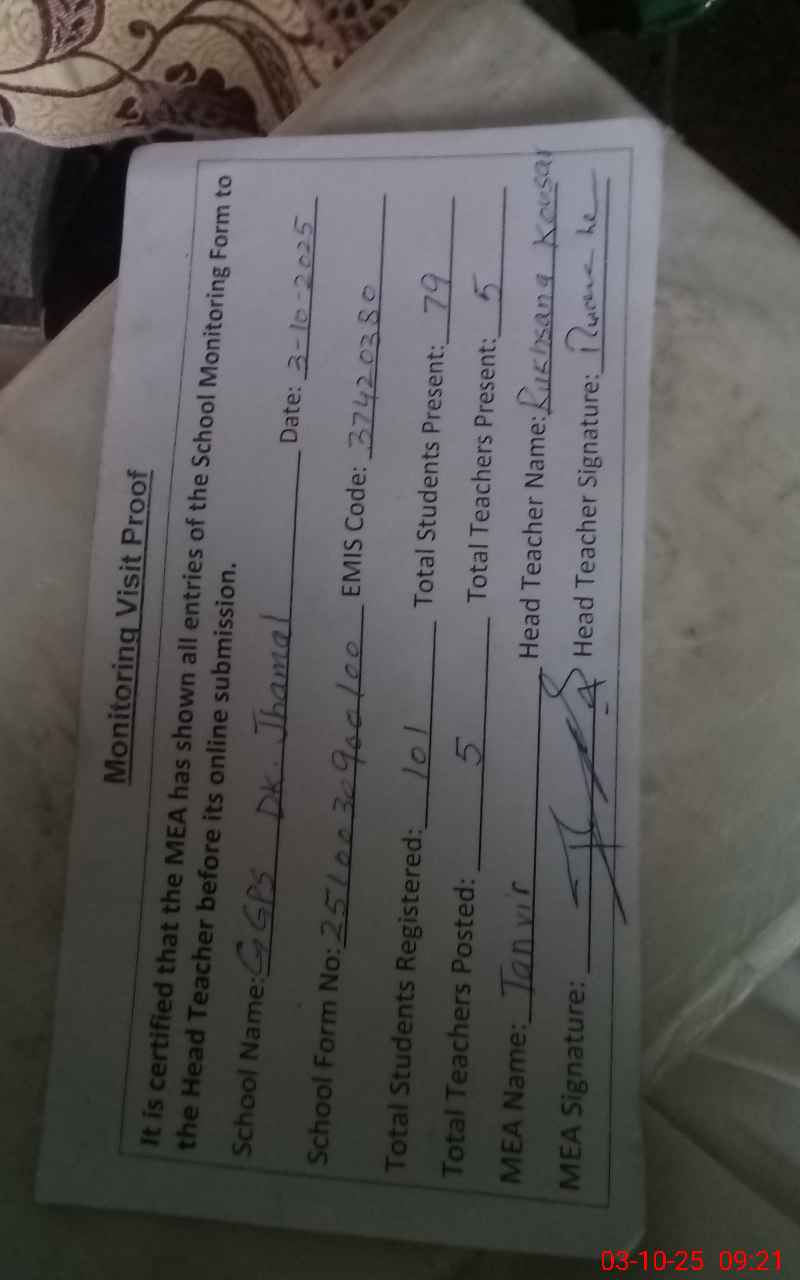 Monitoring Visit Proof
It is certified that the MEA has shown all entries of the School Monitoring Form to
the Head Teacher before its online submission.
School Name: GGPS DK. Jhamal Date: 3-10-2025
School Form No: 2510030900100 EMIS Code: 37420380
Total Students Registered: 101 Total Students Present: 79
Total Teachers Posted: 5 Total Teachers Present: 5
MEA Name: Tanvir Head Teacher Name: Rukhsana Kousar
MEA Signature: Head Teacher Signature:
03-10-25 09:21